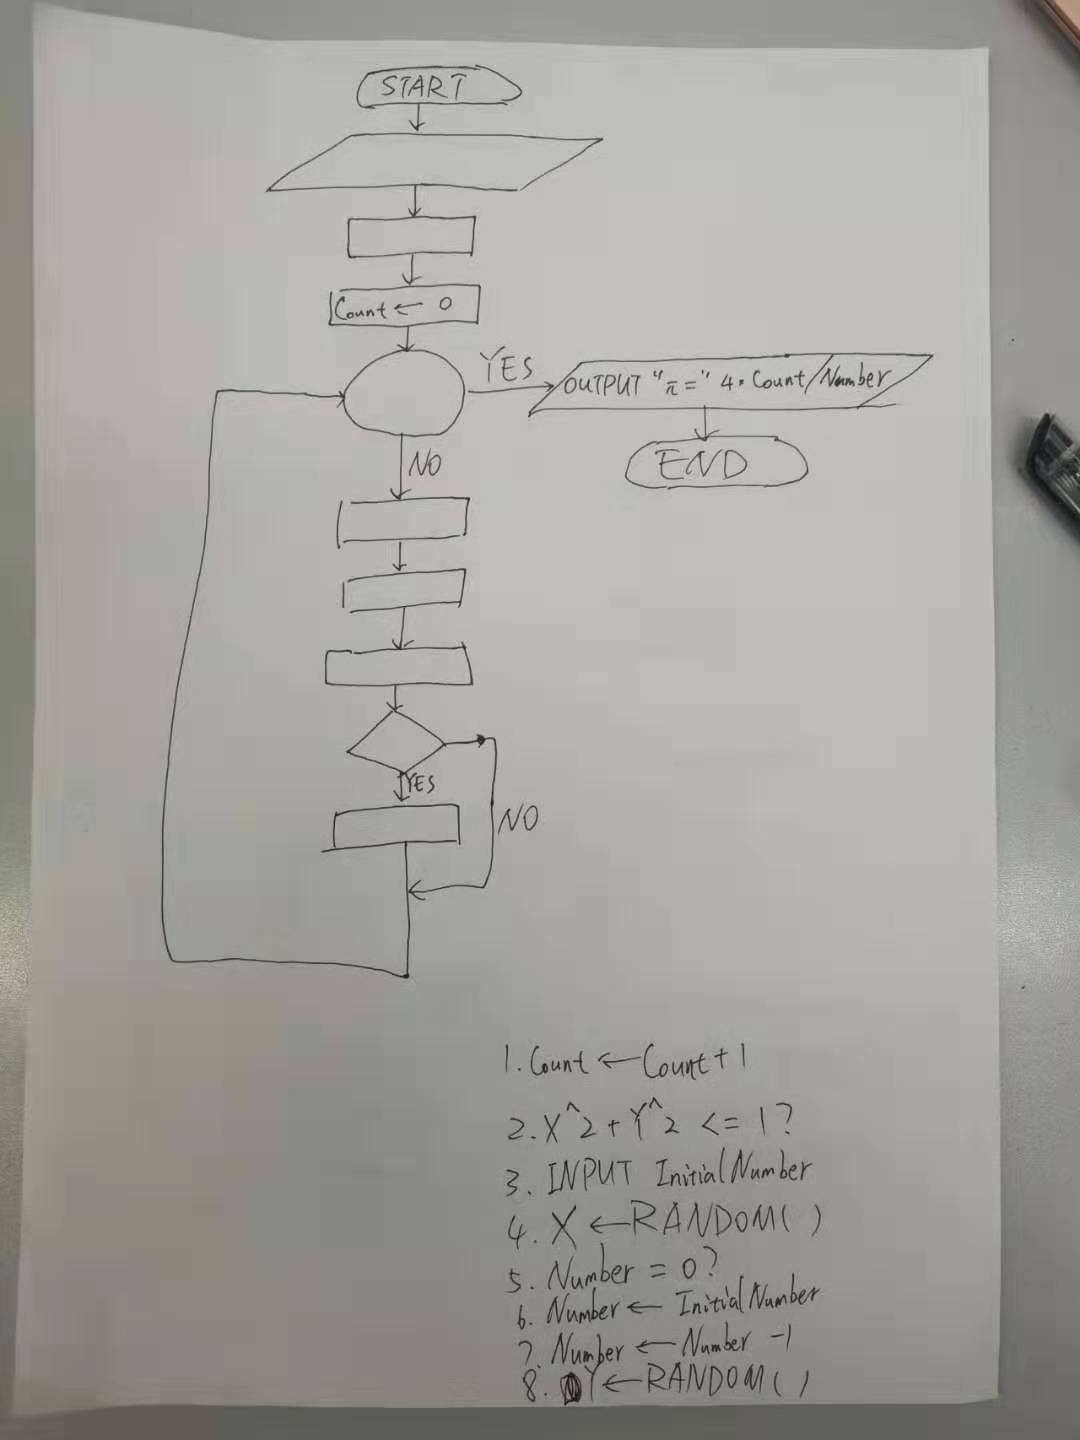 START
Count ← 0
YES
OUTPUT "π=" 4*Count/Number
END
NO
YES
NO
1. Count ← Count + 1
2. X^2 + Y^2 <= 1?
3. INPUT InitialNumber
4. X ← RANDOM( )
5. Number = 0?
6. Number ← InitialNumber
7. Number ← Number -1
8. Y ← RANDOM( )